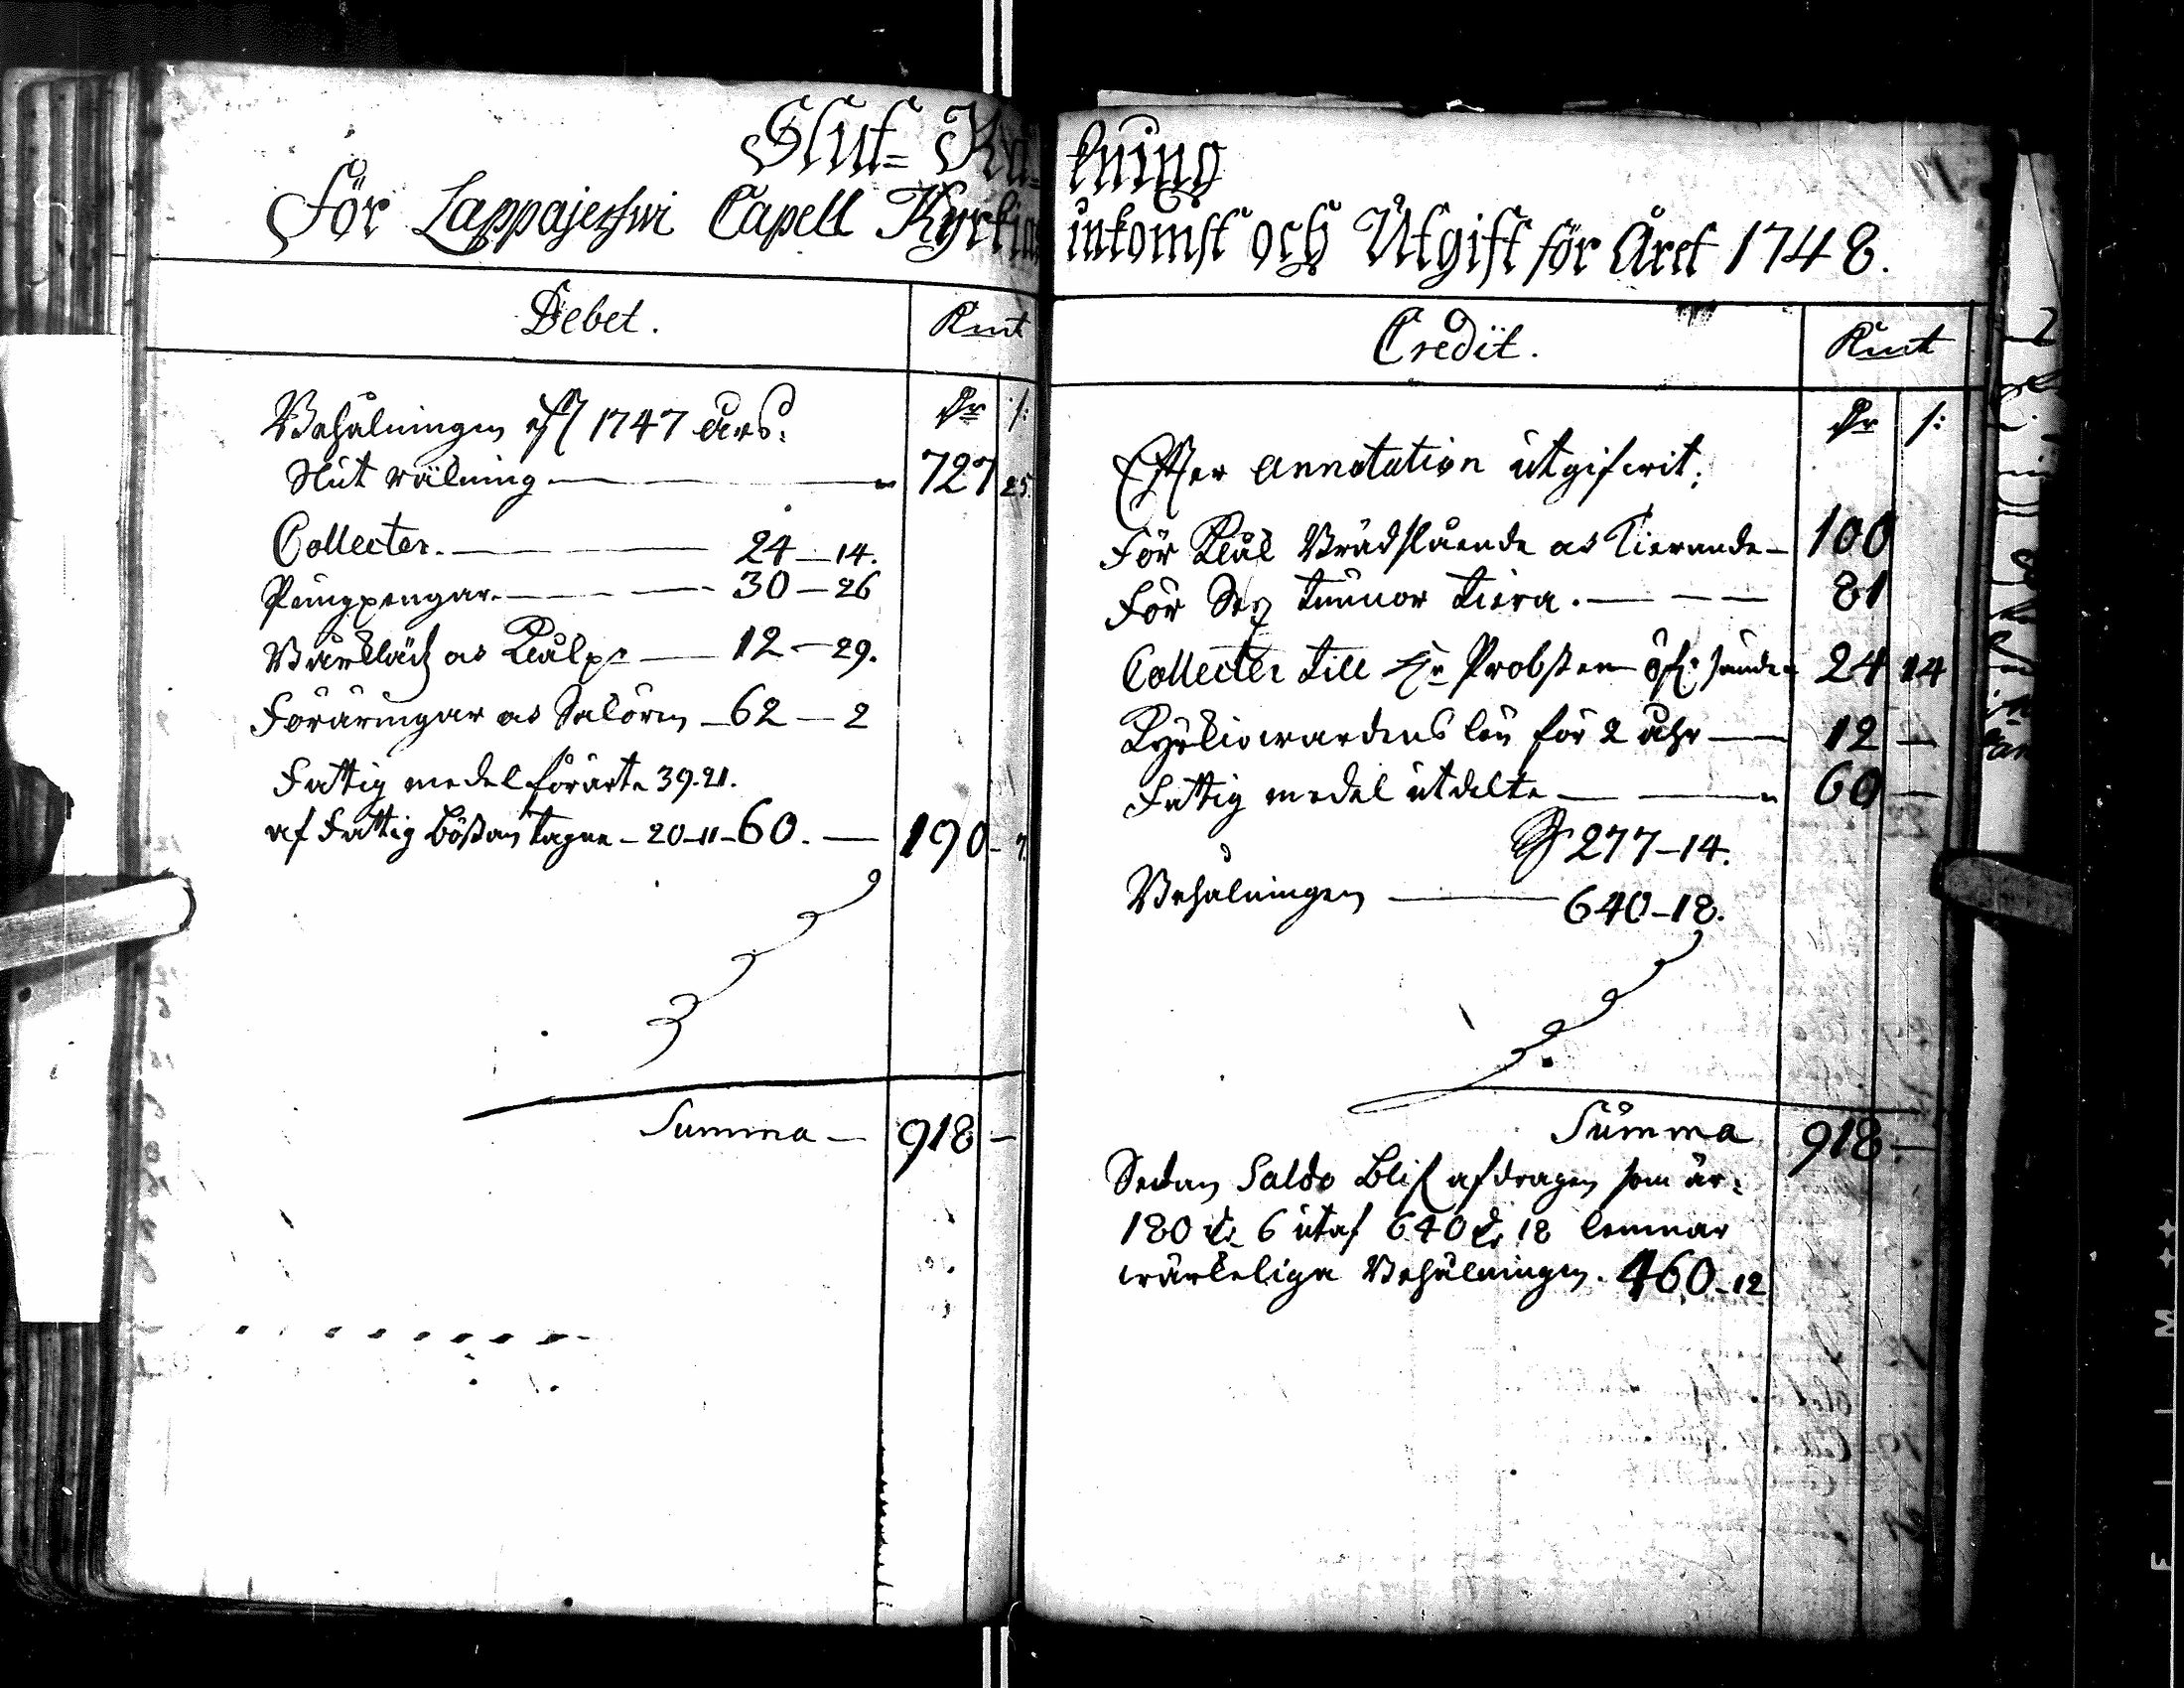 Slut= Räkning
För Lappajerfwi Capell Kyrkias inkomst och Utgift för Året 1748.
Debet. Kmt
Behålningen eft 1747 års: dr /:
Slut räkning 727 25
Collecter. 24—14.
Pungpengar. 30—26
12—29.
Föräringar as Salören 62—2
Fattig medel förärte 39.21.
af Fattig Bössan tagne 20-11-60. 190 7.
Summa 918 —
Credit. Kmt
dr /:
Efter annotation utgifwit:
För 100
För Sex tunnor tiära. 81
Collecter till Hr Probsten öfr sände 24 14
Kyrkiowardens lön för 2 åhr 12 —
Fattig medel utdelte 60 —
277—14.
Behålningen 640—18.
Summa 918 —
Sedan Saldo blif afdragen som är:
180 dr 6 utaf 640 dr 18 lemnar
wärkeliga Behålningen. 460-12